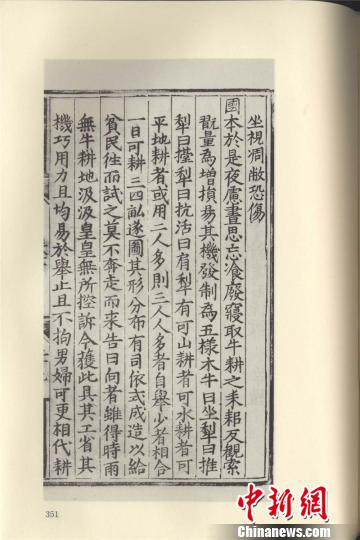 坐視凋敝恐傷
國本於是夜慮晝思忘飡廢寢取牛耕之耒耜反觀索
翫量為增損易其機發制為五樣木牛曰坐犁曰推
犁曰擡犁曰抗活曰肩犁有可山耕者可水耕者可
平地耕者或用二人多則三人人多者自舉少者相合
一日可耕三四畝遂圖其形分布有司依式成造以給
貧民往而試之莫不奔走而来告曰向者雖得時雨
無牛耕地汲汲皇皇無所控訴今獲此具其工省其
機巧用力且均易於舉止且不拘男婦可更相代耕
351
中新網
WWW.CHINANEWS.COM